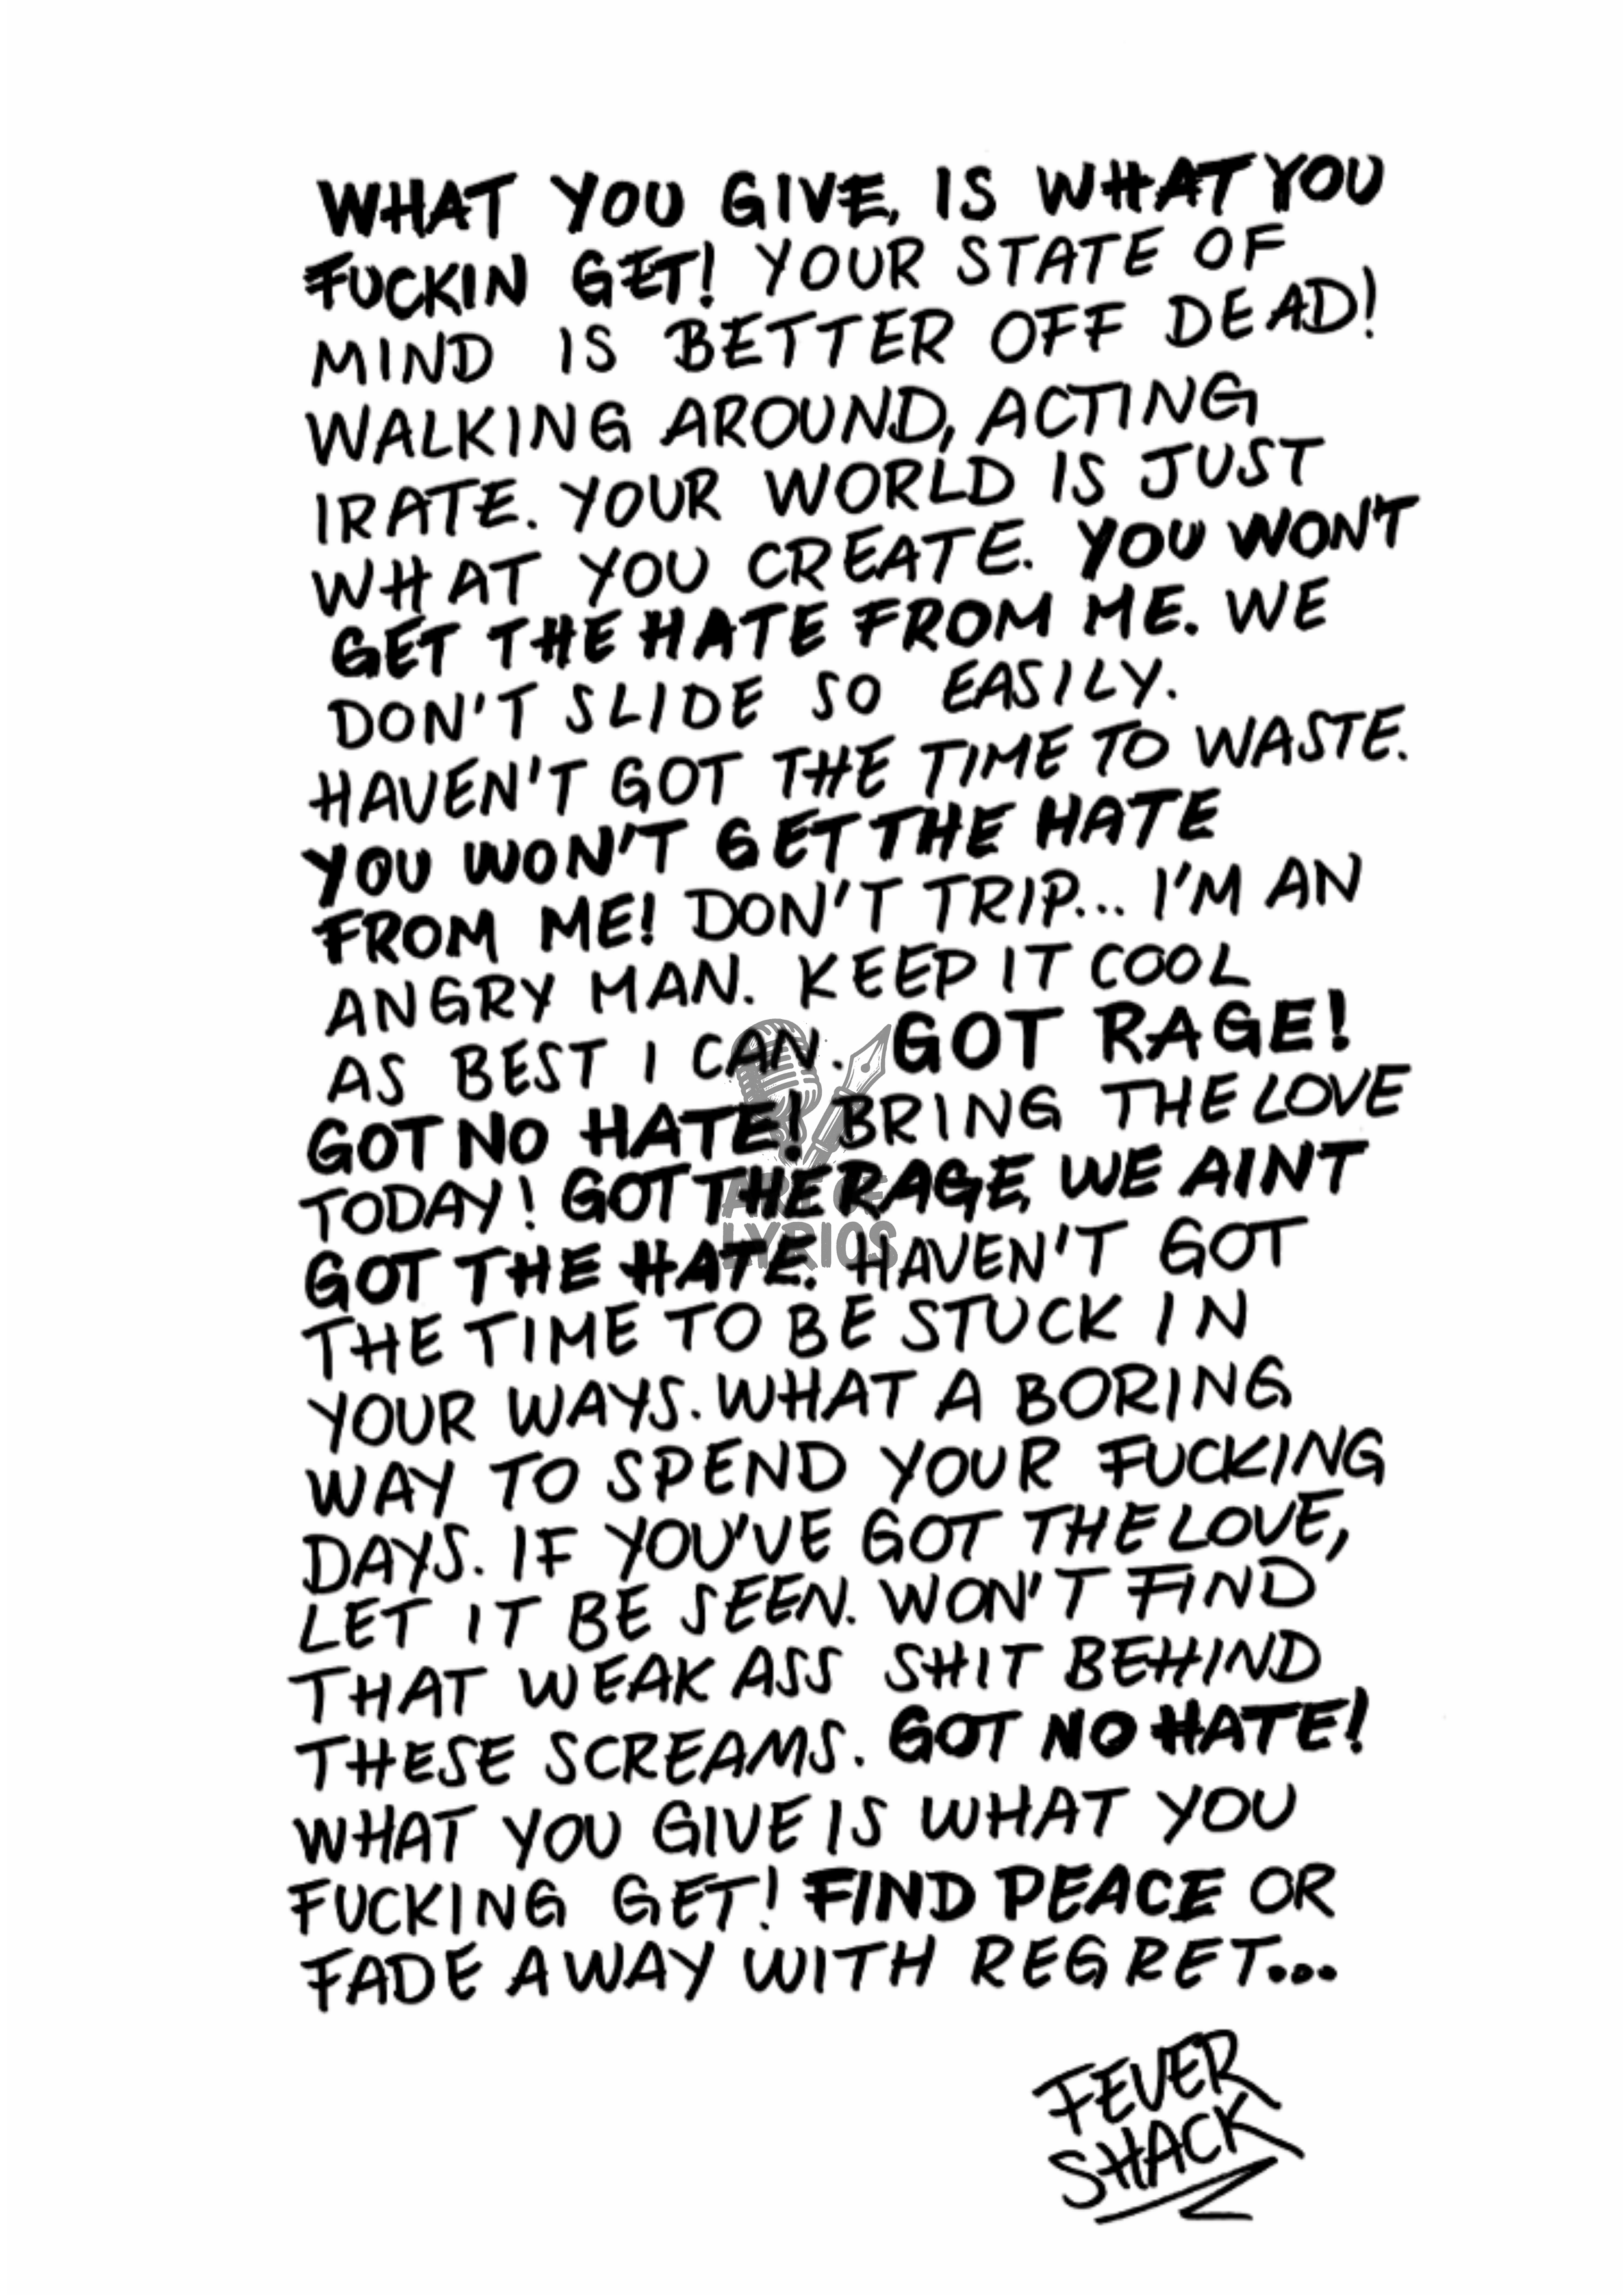 WHAT YOU GIVE, IS WHAT YOU
FUCKIN GET! YOUR STATE OF
MIND IS BETTER OFF DEAD!
WALKING AROUND, ACTING
IRATE. YOUR WORLD IS JUST
WHAT YOU CREATE. YOU WON'T
GET THE HATE FROM ME. WE
DON'T SLIDE SO EASILY.
HAVEN'T GOT THE TIME TO WASTE.
YOU WON'T GET THE HATE
FROM ME! DON'T TRIP... I'M AN
ANGRY MAN. KEEP IT COOL
AS BEST I CAN. GOT RAGE!
GOT NO HATE! BRING THE LOVE
TODAY! GOT THE RAGE, WE AINT
GOT THE HATE. HAVEN'T GOT
THE TIME TO BE STUCK IN
YOUR WAYS. WHAT A BORING
WAY TO SPEND YOUR FUCKING
DAYS. IF YOU'VE GOT THE LOVE,
LET IT BE SEEN. WON'T FIND
THAT WEAK ASS SHIT BEHIND
THESE SCREAMS. GOT NO HATE!
WHAT YOU GIVE IS WHAT YOU
FUCKING GET! FIND PEACE OR
FADE AWAY WITH REGRET...
FEVER
SHACK
ART OF
LYRICS